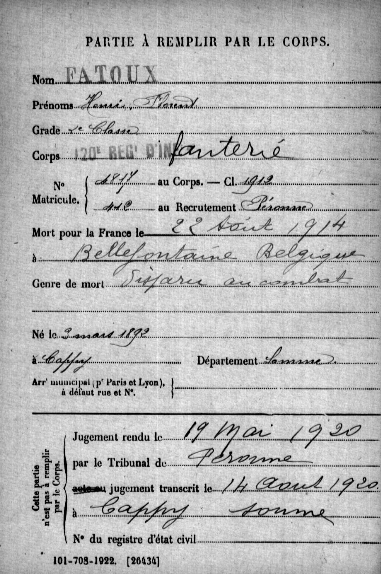 PARTIE À REMPLIR PAR LE CORPS.
Nom FATOUX
Prénoms Henri, Florent
Grade 2e Classe
Corps 120e REGt D'INfanterie
No Matricule. 4817 au Corps. — Cl. 1912
412 au Recrutement Péronne
Mort pour la France le 22 Août 1914
à Bellefontaine Belgique
Genre de mort Disparu au combat
Né le 2 mars 1892
à Cappy Département Somme
Arrt municipal (pr Paris et Lyon), à défaut rue et No.
Cette partie n'est pas à remplir par le Corps.
Jugement rendu le 19 Mai 1920
par le Tribunal de Peronne
acte ou jugement transcrit le 14 Aout 1920
à Cappy Somme
No du registre d'état civil
101-708-1922. [26434]